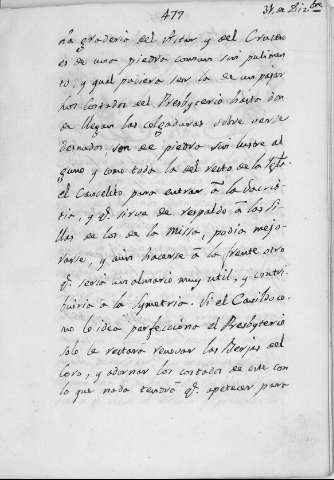 477
31. de Diz.bre
na graderia del Altar y del Crucero
es de una piedra comun sin pulimen
to, y qual pudiera ser la de un pajar
los costados del Presbyterio hasta don
de llegan las colgaduras sobre verse
desnudos son de piedra sin lustre al
guno y como toda la del resto de la Igla.
el Cancelito para entrar â la Sacris
tia, y q.e sirve de respaldo â las Si
llas de los de la Missa, podia mejo
rarse, y aun hacerse a la frente otro
q.e seria un almario muy util, y contri
buiria a la symetria. Si el Cavildo co
mo lo idea perfecciona el Presbyterio
solo le restara renovar las Berjas del
Coro, y adornar los costados de este con
lo que nada tendrâ q.e apetecer para